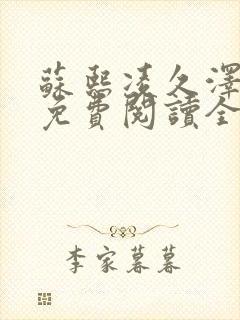 蘇熙凌久澤
免費閱讀全
李家暮暮